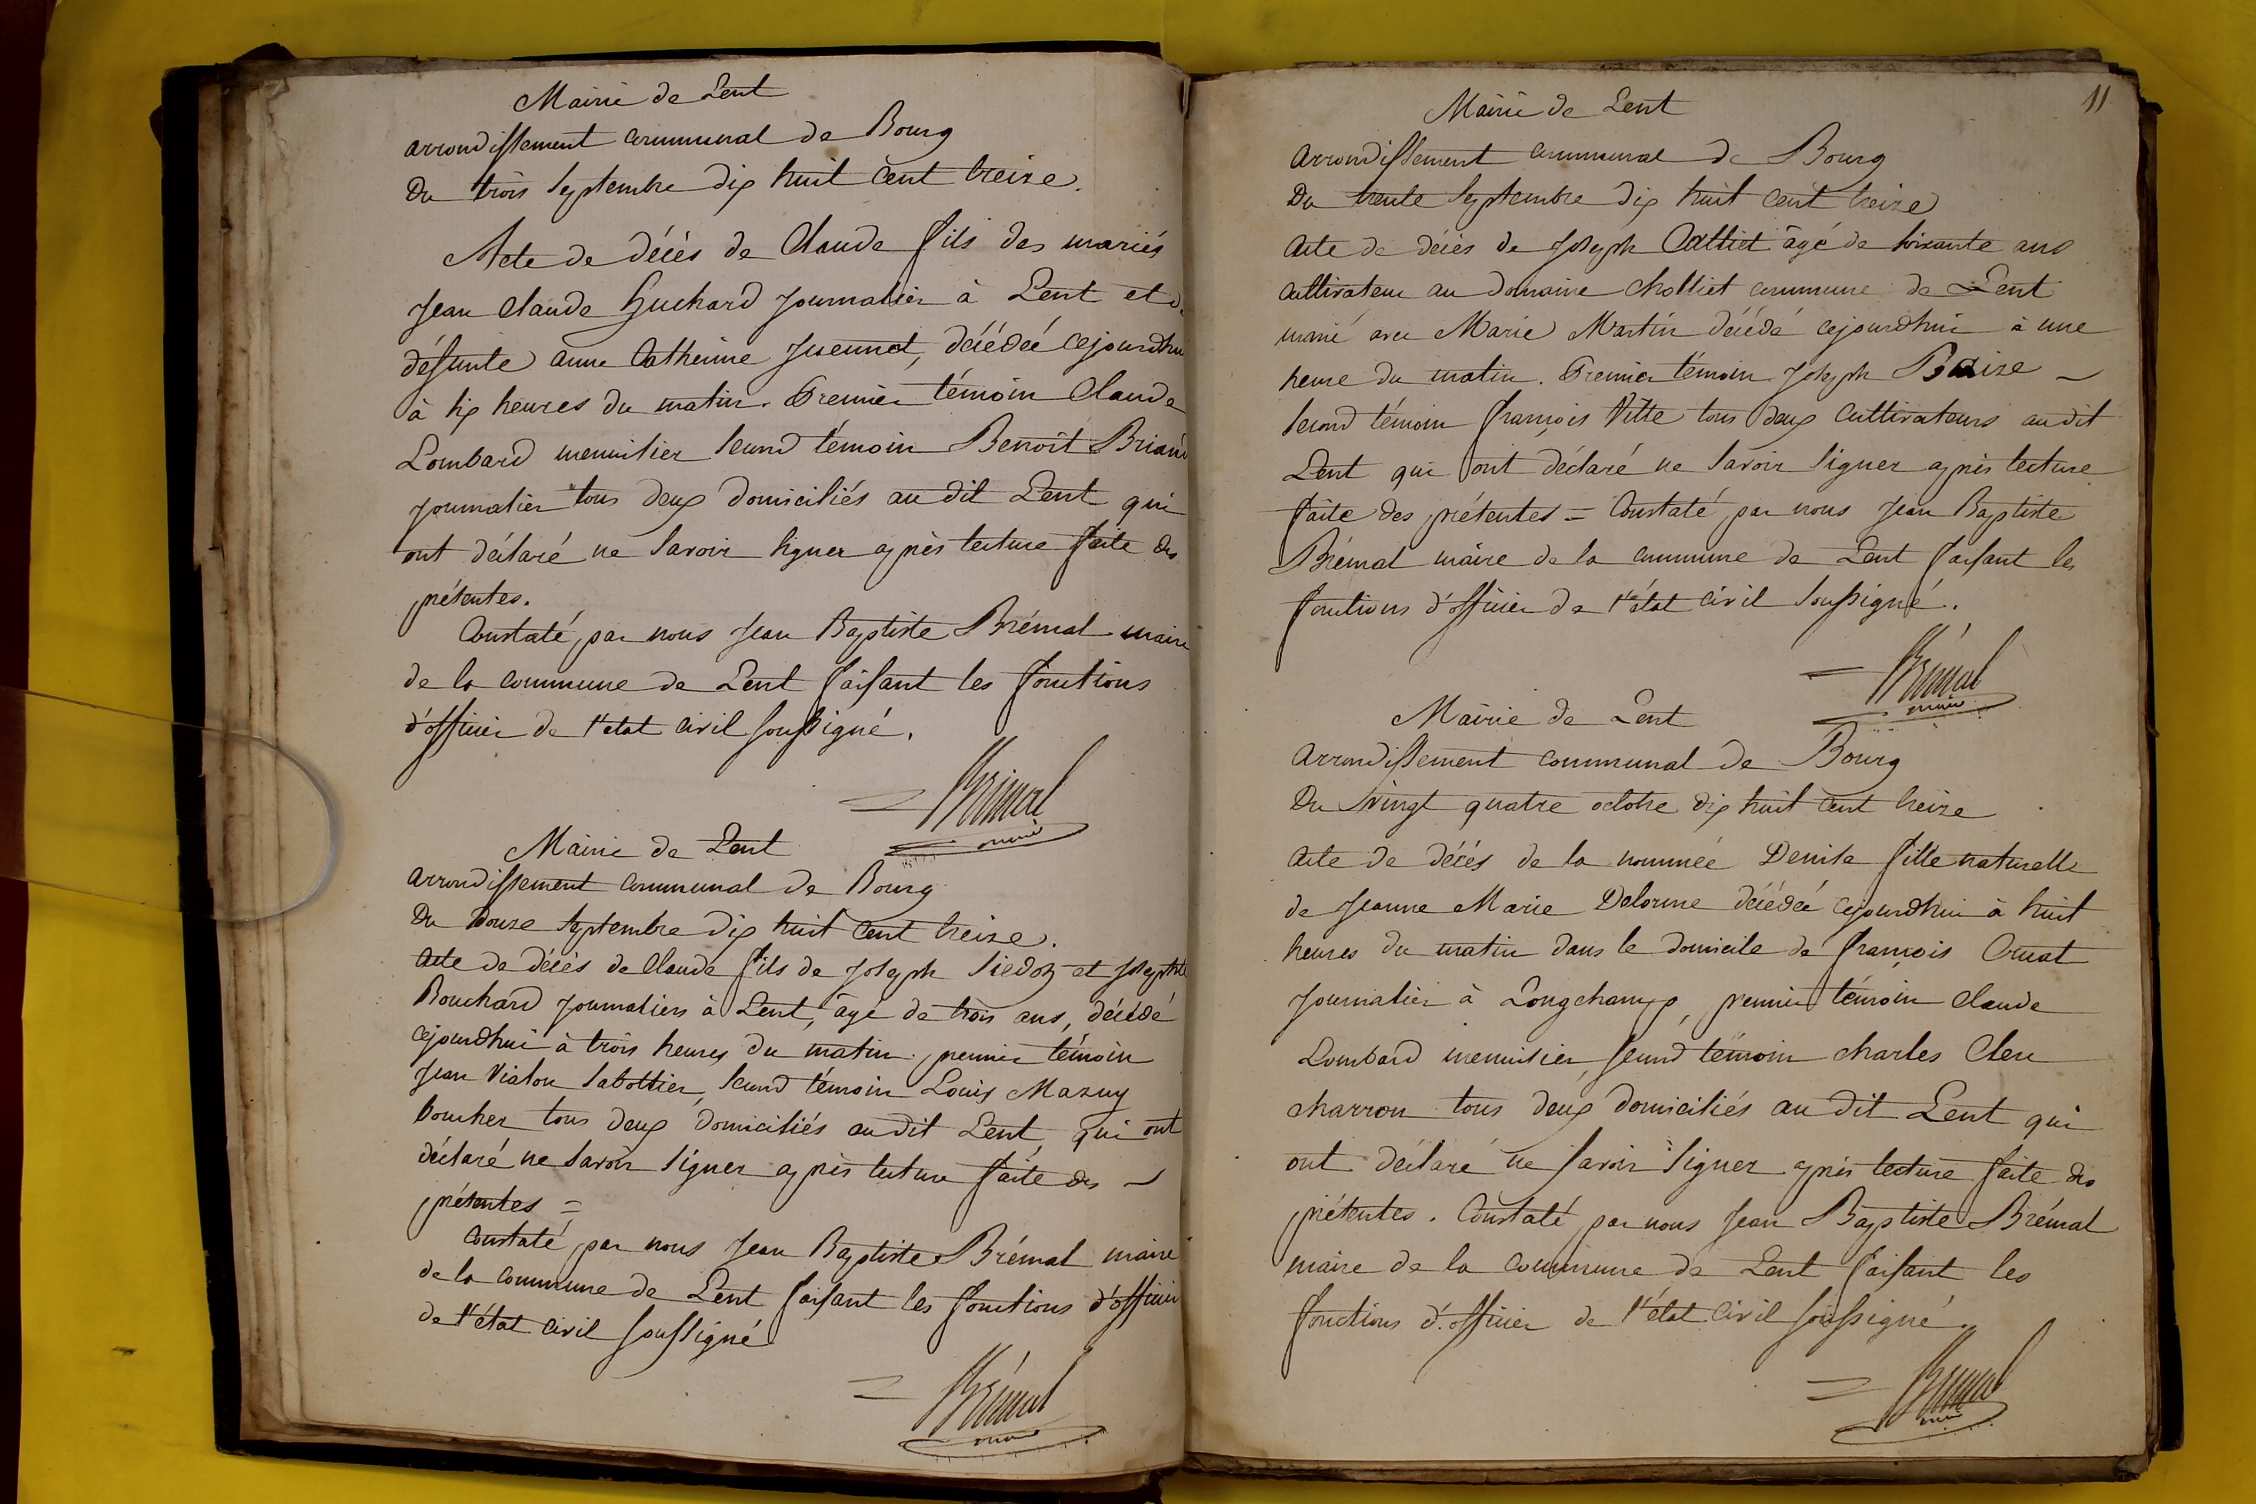 Mairie de Lent
arrondissement communal de Bourg
Du trois septembre dix huit cent treize.
Acte de décès de Claude fils des mariés
Jean Claude Guchard journalier à Lent et
défunte anne Catherine décédée cejourdhui
à six heures du matin. Premier témoin Claude
Lombard menuisier second témoin Benoît Briand
journalier tous deux domiciliés au dit Lent qui
ont déclaré ne savoir signer après lecture faite des
présentes.
Constaté par nous Jean Baptiste Brémal maire
de la commune de Lent faisant les fonctions
d'officier de l'etat civil soussigné.
Brémal
maire
Mairie de Lent
arrondissement communal de Bourg
Du douze septembre dix huit cent treize.
acte de décès de Claude fils de Joseph Siedoz et Josephte
Bouchard journaliers à Lent, âgé de trois ans, décédé
cejourdhui à trois heures du matin. premier témoin
Jean Vialon sabottier, second témoin Louis Mazuy
boucher tous deux domiciliés au dit Lent, qui ont
déclaré ne savoir signer après lecture faite des
présentes =
Constaté par nous Jean Baptiste Brémal maire
de la commune de Lent faisant les fonctions d'officier
de l'état civil soussigné
Brémal
maire
11
Mairie de Lent
arrondissement communal de Bourg
Du trente septembre dix huit cent treize
acte de décès de Joseph Calliet âgé de soixante ans
cultivateur au domaine cholliet commune de Lent
marié avec Marie Martin décédé cejourdhui à une
heure du matin. Premier témoin Joseph
second témoin françois Vitte tous deux cultivateurs au dit
Lent qui ont déclaré ne savoir signer après lecture
faite des présentes = Constaté par nous Jean Baptiste
Brémal maire de la commune de Lent faisant les
fonctions d'officier de l'état civil soussigné.
Brémal
maire
Mairie de Lent
arrondissement communal de Bourg
Du vingt quatre octobre dix huit cent treize
acte de décés de la nommée Denise fille naturelle
de Jeanne Marie Delorme décédée cejourdhui à huit
heures du matin dans le domicile de françois
journalier à Longchamp, premier témoin Claude
Lombard menuisier, second témoin charles Clerc
charron tous deux domiciliés au dit Lent qui
ont déclaré ne savoir signer après lecture faite des
présentes. Constaté par nous Jean Baptiste Brémal
maire de la commune de Lent faisant les
fonctions d'officier de l'état civil soussigné.
Brémal
maire